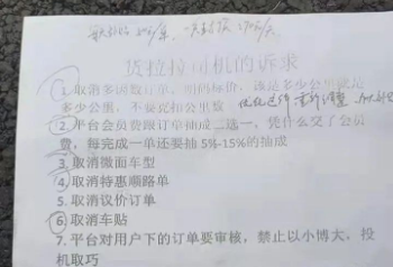 货拉拉司机的诉求
1.取消多因数订单,明码标价,该是多少公里就是
多少公里,不要克扣公里数
2.平台会员费跟订单抽成二选一,凭什么交了会员
费,每完成一单还要抽 5%-15%的抽成
3.取消微面车型
4.取消特惠顺路单
5.取消议价订单
6.取消车贴
7.平台对用户下的订单要审核,禁止以小博大,投
机取巧